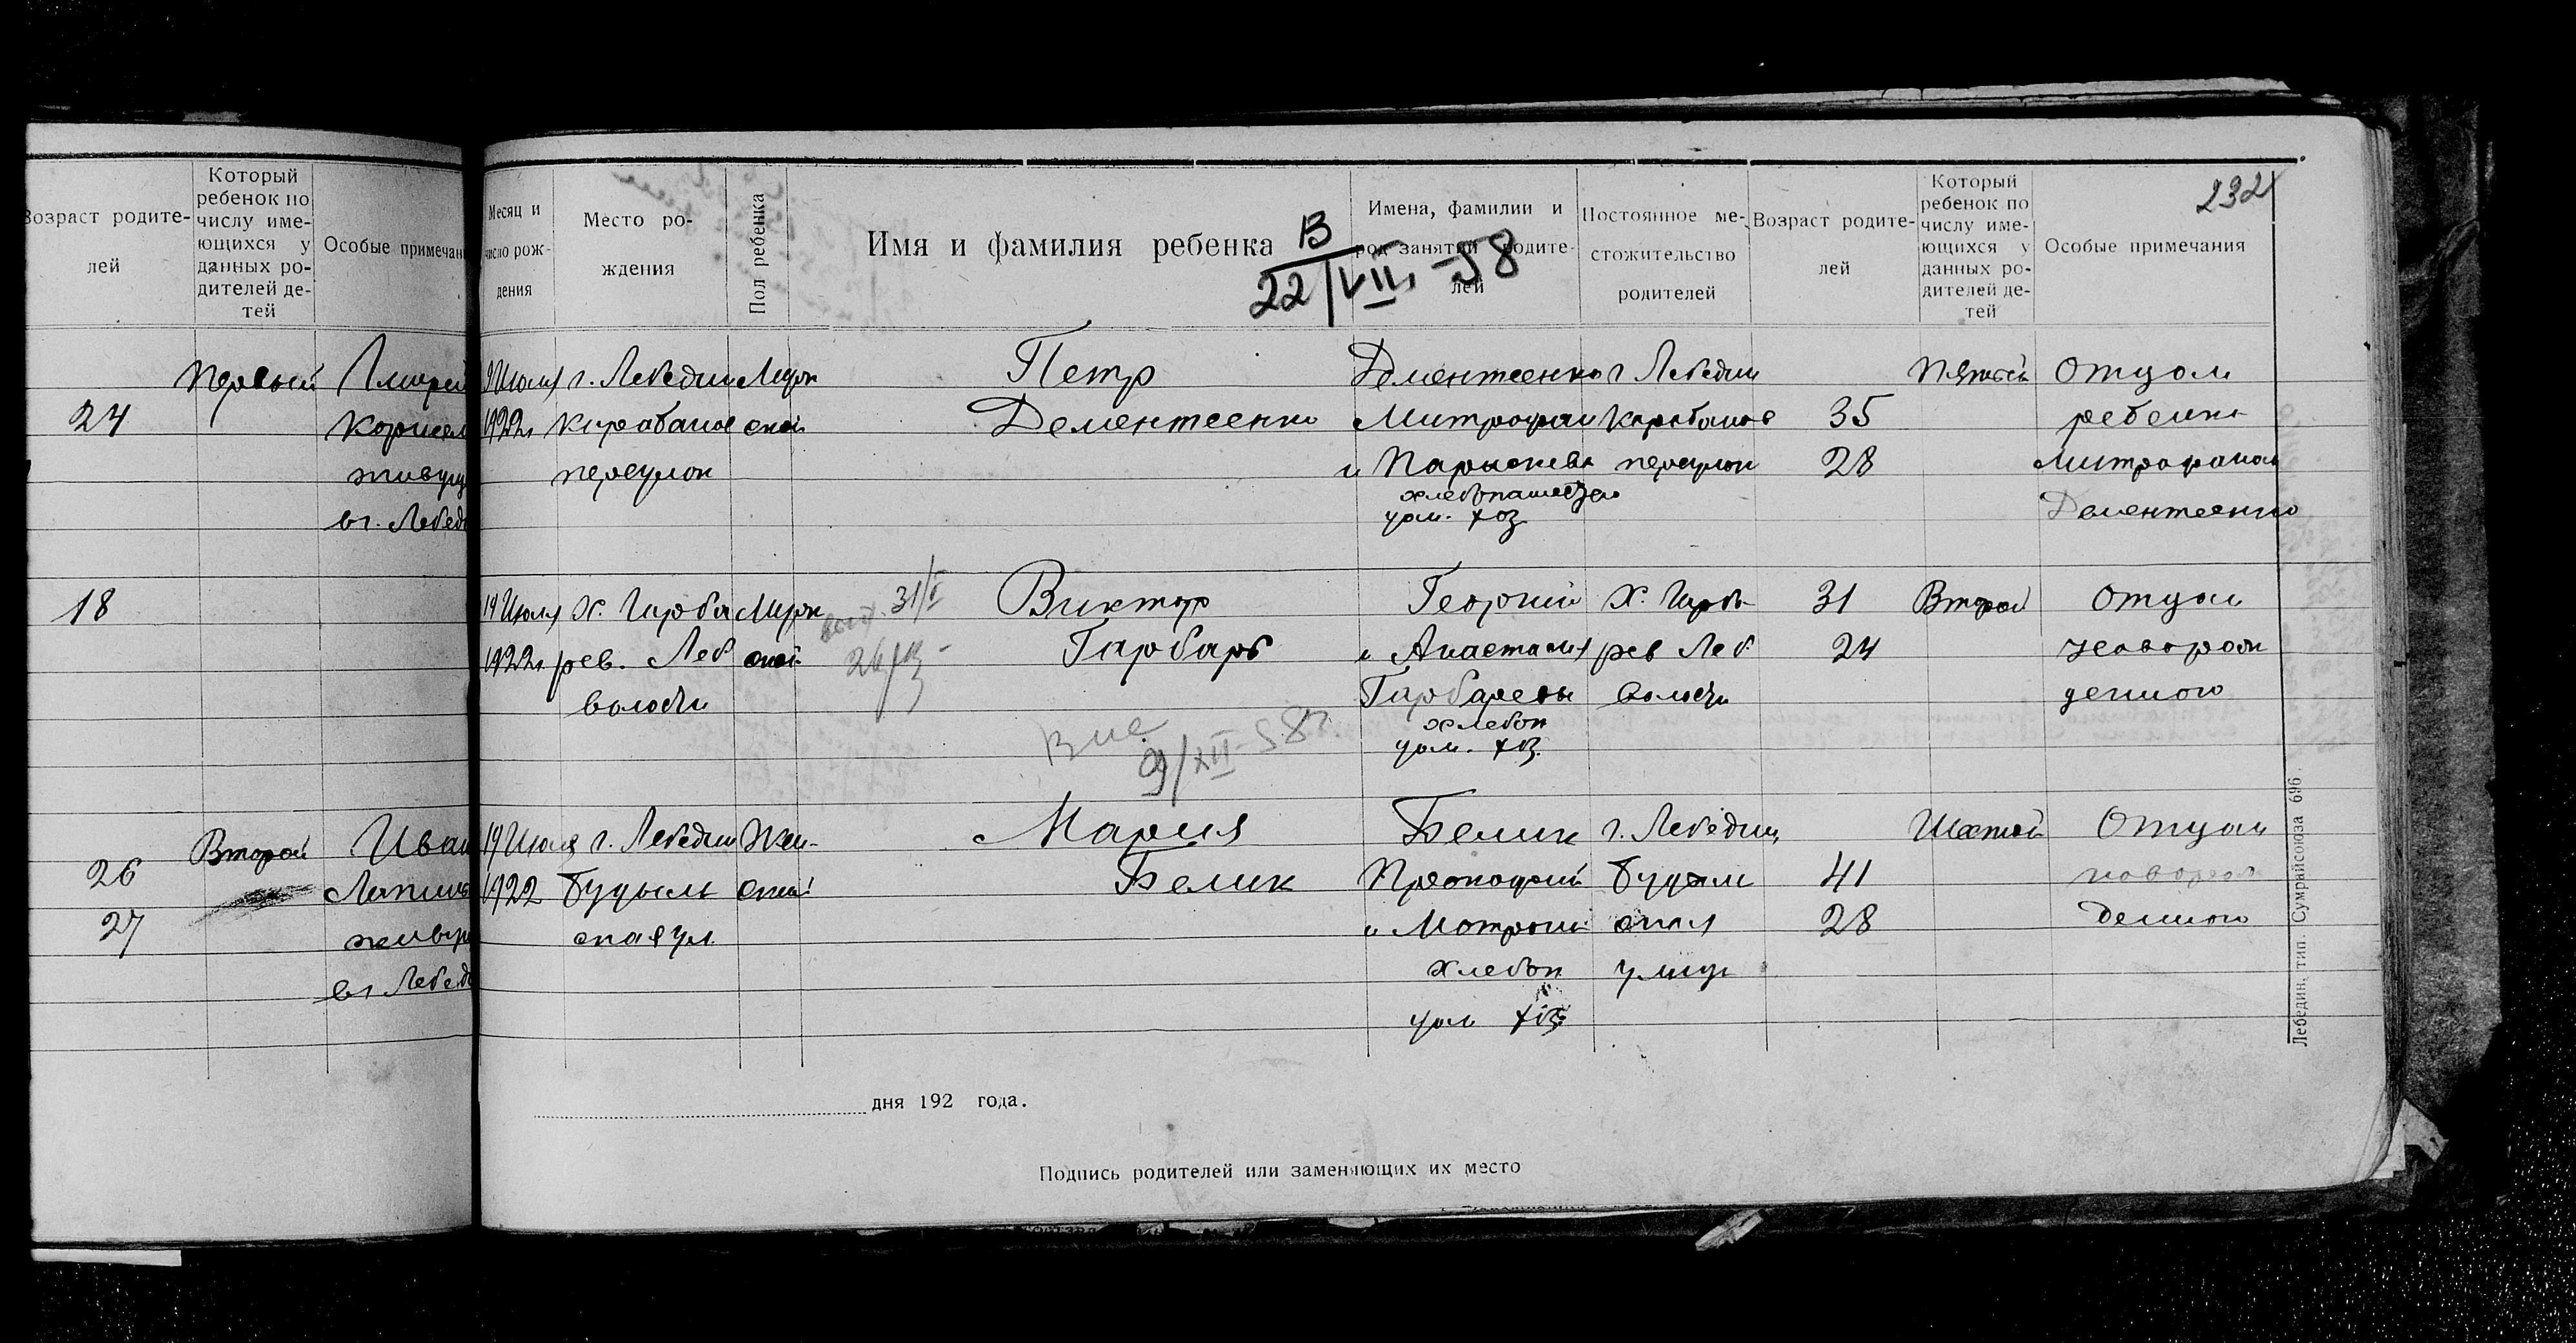 Возраст родите-
лей
Который
ребенок по
числу име-
ющихся у
данных ро-
дителей де-
тей
Особые примечан
24
Первый
живущ
в г. Лебед
18
26
27
Второй
Иван
живущ
в г. Лебед
Месяц и
число рож-
дения
Место ро-
ждения
Пол ребенка
Имя и фамилия ребенка
Имена, фамилии и
род занятий родите-
лей
Постоянное ме-
стожительство
родителей
Возраст родите-
лей
Который
ребенок по
числу име-
ющихся у
данных ро-
дителей де-
тей
Особые примечания
232
В
22/VII-58
9 Июля
1922г.
г. Лебедин
Карабанов
переулок
Муж
ской
Петр
Дементеенко
Дементеенко
Митрофан
и Парыскева
хлебопашедел
дом. хоз
г. Лебедин
Карабанов
переулок
35
28
Пятый
Отцом
ребенка
Митрофаном
Дементеенко
19 Июля
1922г.
х. Гарба
рев. Леб
волости
Муж
ской
31/I
Виктор
Гарбарь
9/XII-58г.
Георгий
и Анастасия
Гарбаревы
хлебоп
дом. хоз.
х. Гарба-
рев Леб.
волости
31
24
Второй
Отцом
новорож
денного
19 Июля
1922
г. Лебедин
Будыль
ская ул.
Жен-
ской
Мария
Белик
Белик
Прокофий
и Мотрона
хлебоп
дом хоз
г. Лебедин,
Будыль
ская
улица
41
28
Шестой
Отцом
новорож
денного
Лебедин, тип. Сумрайсоюза 696
дня 192 года.
Подпись родителей или заменяющих их место